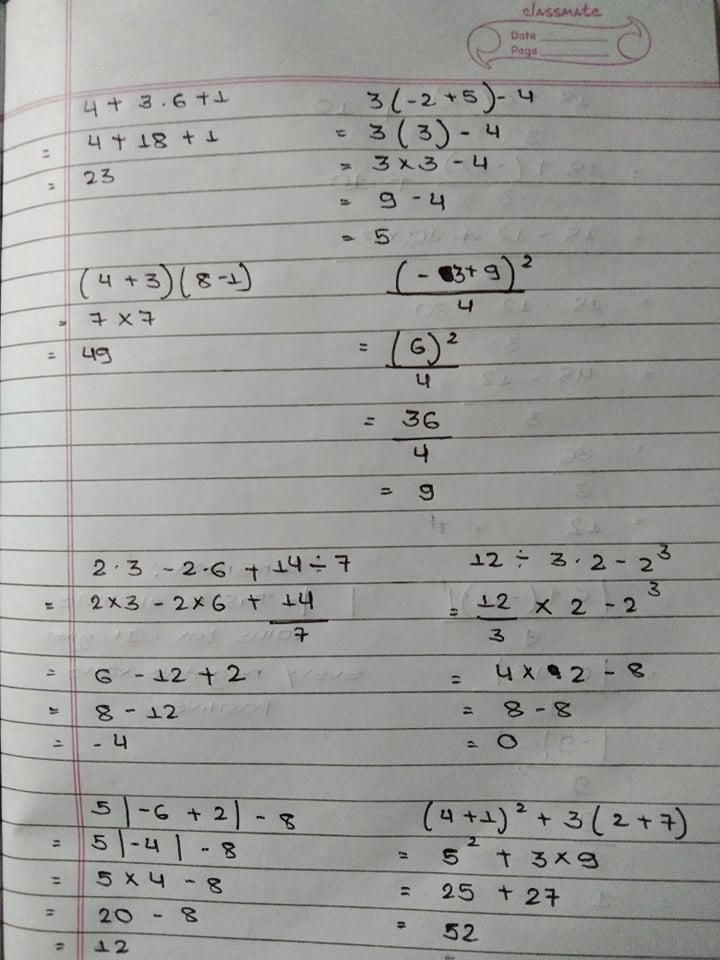 classmate
Date
Page
4 + 3.6 + 1
= 4 + 18 + 1
= 23
3(-2+5)-4
= 3(3) - 4
= 3 × 3 - 4
= 9 - 4
= 5
(4+3)(8-1)
= 7 × 7
= 49
(-3+9)²
4
= (6)²
4
= 36
4
= 9
2·3 - 2·6 + 14÷7
= 2×3 - 2×6 + 14
7
= 6 - 12 + 2
= 8 - 12
= -4
12 ÷ 3·2 - 2³
= 12 × 2 - 2³
3
= 4 × 2 - 8
= 8 - 8
= 0
5|-6 + 2| - 8
= 5|-4| - 8
= 5 × 4 - 8
= 20 - 8
= 12
(4+1)² + 3(2+7)
= 5² + 3×9
= 25 + 27
= 52